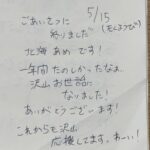 5/15
(もくようび)
ごあいさつに
参りました
北海あめです!
一年間たのしかったなぁ
沢山お世話に
なりました!
ありがとうございます!
これからも沢山
応援してます。わーい!